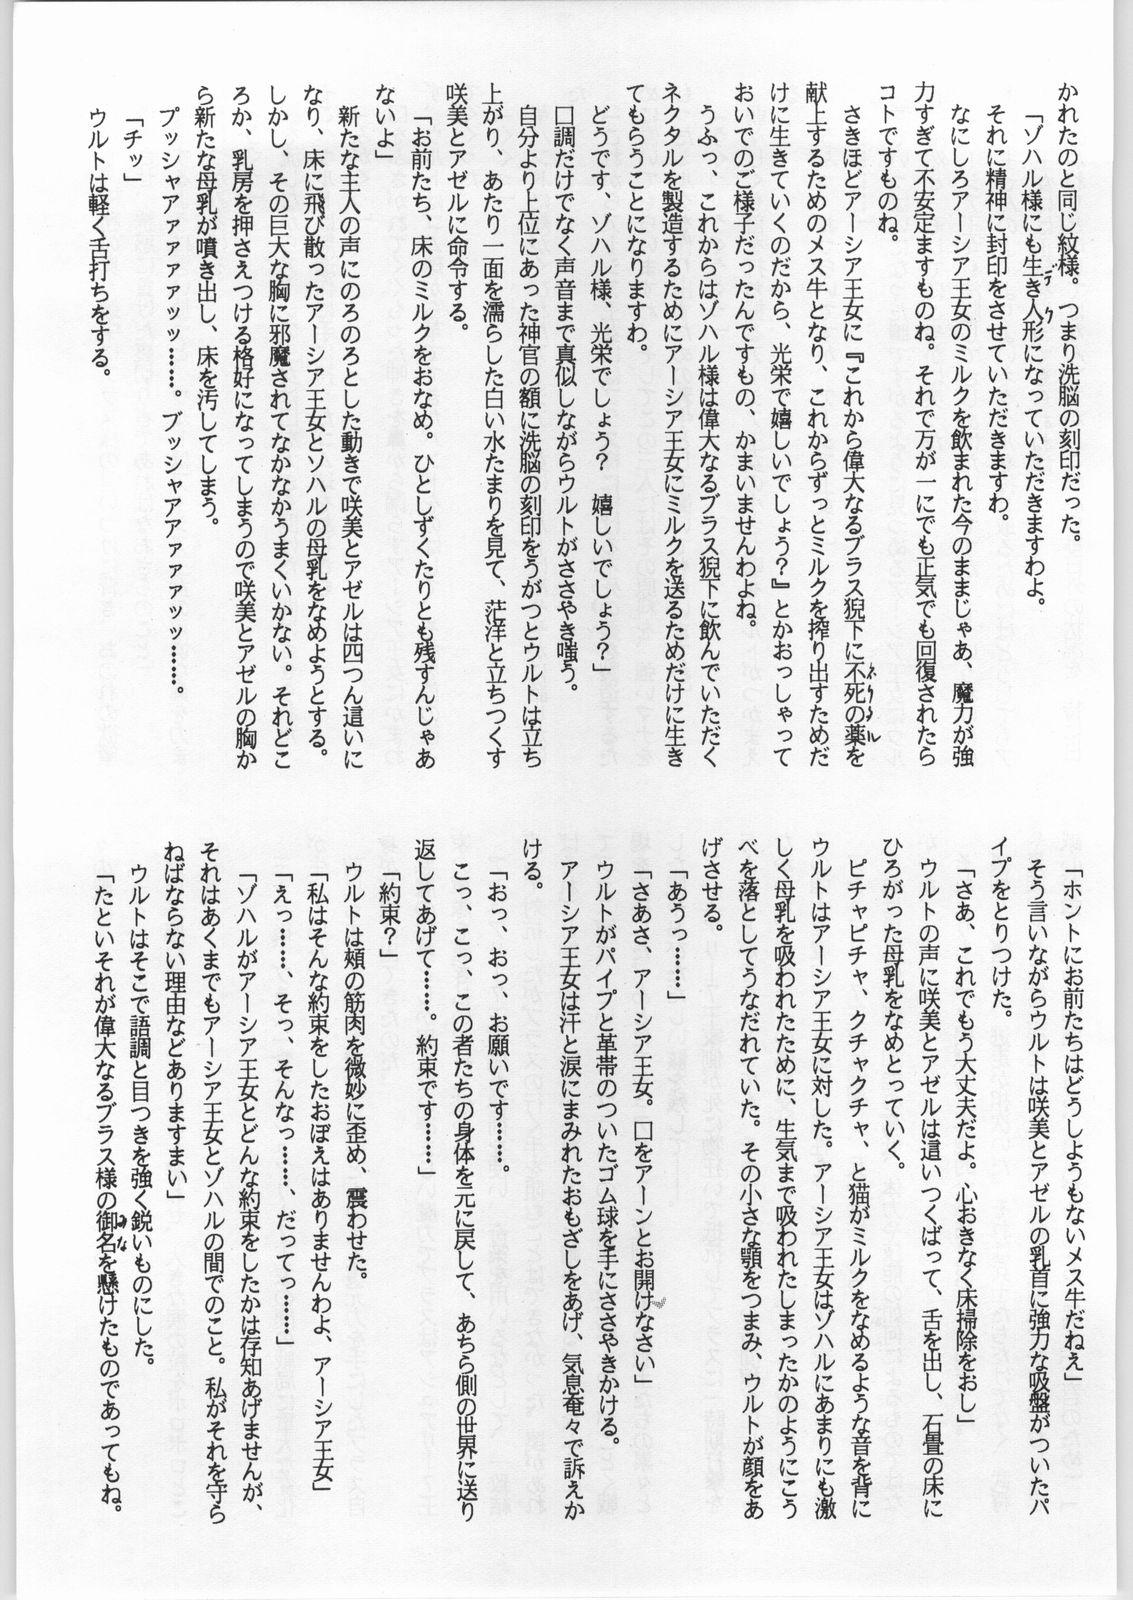 かれたのと同じ紋様。つまり洗脳の刻印だった。
「ゾハル様にも生き人形になっていただきますわよ。
それに精神に封印をさせていただきますわ。
なにしろアーシア王女のミルクを飲まれた今のままじゃあ、魔力が強
力すぎて不安定ますものね。それで万が一にでも正気でも回復されたら
コトですものね。
さきほどアーシア王女に『これから偉大なるブラス猊下に不死の薬を
献上するためのメス牛となり、これからずっとミルクを搾り出すためだ
けに生きていくのだから、光栄で嬉しいでしょう?』とかおっしゃって
おいでのご様子だったんですもの、かまいませんわよね。
うふっ、これからはゾハル様は偉大なるブラス猊下に飲んでいただく
ネクタルを製造するためにアーシア王女にミルクを送るためだけに生き
てもらうことになりますわ。
どうです、ゾハル様、光栄でしょう? 嬉しいでしょう?」
口調だけでなく声音まで真似しながらウルトがささやき嗤う。
自分より上位にあった神官の額に洗脳の刻印をうがつとウルトは立ち
上がり、あたり一面を濡らした白い水たまりを見て、茫洋と立ちつくす
咲美とアゼルに命令する。
「お前たち、床のミルクをおなめ。ひとしずくたりとも残すんじゃあ
ないよ」
新たな主人の声にのろのろとした動きで咲美とアゼルは四つん這いに
なり、床に飛び散ったアーシア王女とソハルの母乳をなめようとする。
しかし、その巨大な胸に邪魔されてなかなかうまくいかない。それどこ
ろか、乳房を押さえつける格好になってしまうので咲美とアゼルの胸か
ら新たな母乳が噴き出し、床を汚してしまう。
プッシャアァァァァッッ……。ブッシャアアァァァッッ……。
「チッ」
ウルトは軽く舌打ちをする。
「ホントにお前たちはどうしようもないメス牛だねえ」
そう言いながらウルトは咲美とアゼルの乳首に強力な吸盤がついたパ
イプをとりつけた。
「さあ、これでもう大丈夫だよ。心おきなく床掃除をおし」
ウルトの声に咲美とアゼルは這いつくばって、舌を出し、石畳の床に
ひろがった母乳をなめとっていく。
ピチャピチャ、クチャクチャ、と猫がミルクをなめるような音を背に
ウルトはアーシア王女に対した。アーシア王女はゾハルにあまりにも激
しく母乳を吸われたために、生気まで吸われたしまったかのようにこう
べを落としてうなだれていた。その小さな顎をつまみ、ウルトが顔をあ
げさせる。
「あうっ……」
「さあさ、アーシア王女。口をアーンとお開けなさい」
ウルトがパイプと革帯のついたゴム球を手にささやきかける。
アーシア王女は汗と涙にまみれたおもざしをあげ、気息奄々で訴えか
ける。
「おっ、おっ、お願いです……。
こっ、こっ、この者たちの身体を元に戻して、あちら側の世界に送り
返してあげて……。約束です……」
「約束?」
ウルトは頬の筋肉を微妙に歪め、震わせた。
「私はそんな約束をしたおぼえはありませんわよ、アーシア王女」
「えっ……、そっ、そんなっ……、だってっ……」
「ゾハルがアーシア王女とどんな約束をしたかは存知あげませんが、
それはあくまでもアーシア王女とゾハルの間でのこと。私がそれを守ら
ねばならない理由などありますまい」
ウルトはそこで語調と目つきを強く鋭いものにした。
「たといそれが偉大なるブラス様の御名を懸けたものであってもね。